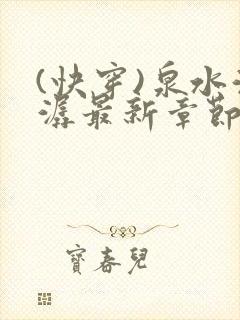 (快穿)泉水
潺最新章節
寶春兒